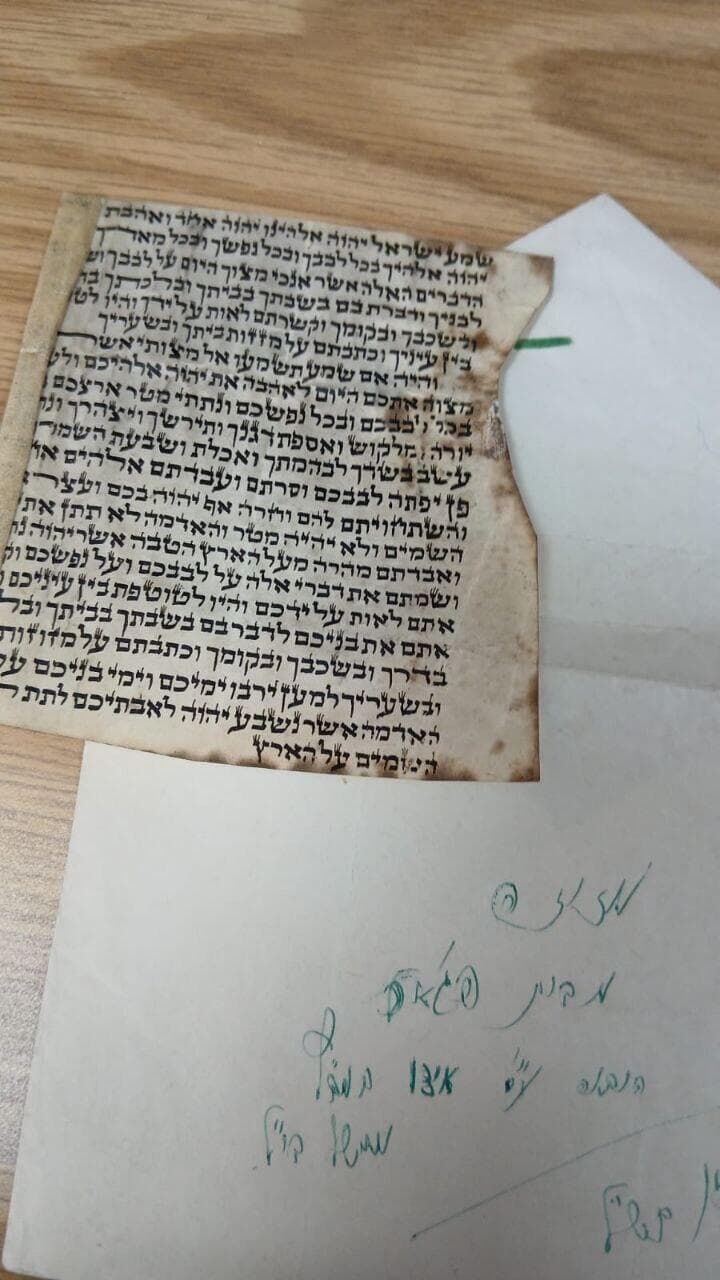 שמע ישראל יהוה אלהינו יהוה אחד ואהבת
יהוה אלהיך בכל לבבך ובכל נפשך ובכל מאדך
הדברים האלה אשר אנכי מצוך היום על לבבך וש
לבניך ודברת בם בשבתך בביתך ובלכתך בד
ובשכבך ובקומך וקשרתם לאות על ידך והיו לטט
בין עיניך וכתבתם על מזזות ביתך ובשעריך
והיה אם שמע תשמעו אל מצותי אשר
מצוה אתכם היום לאהבה את יהוה אלהיכם ולע
בכל לבבכם ובכל נפשכם ונתתי מטר ארצכם
יורה ומלקוש ואספת דגנך ותירשך ויצהרך ונת
עשב בשדך לבהמתך ואכלת ושבעת השמרו
פן יפתה לבבכם וסרתם ועבדתם אלהים אח
והשתחויתם להם וחרה אף יהוה בכם ועצר א
השמים ולא יהיה מטר והאדמה לא תתן את
ואבדתם מהרה מעל הארץ הטבה אשר יהוה נת
ושמתם את דברי אלה על לבבכם ועל נפשכם וק
אתם לאות על ידכם והיו לטוטפת בין עיניכם
אתם את בניכם לדבר בם בשבתך בביתך ובל
בדרך ובשכבך ובקומך וכתבתם על מזוזות
ובשעריך למען ירבו ימיכם וימי בניכם על
האדמה אשר נשבע יהוה לאבתיכם לתת
השמים על הארץ
מזוזה
מבית
הובאה ע"י